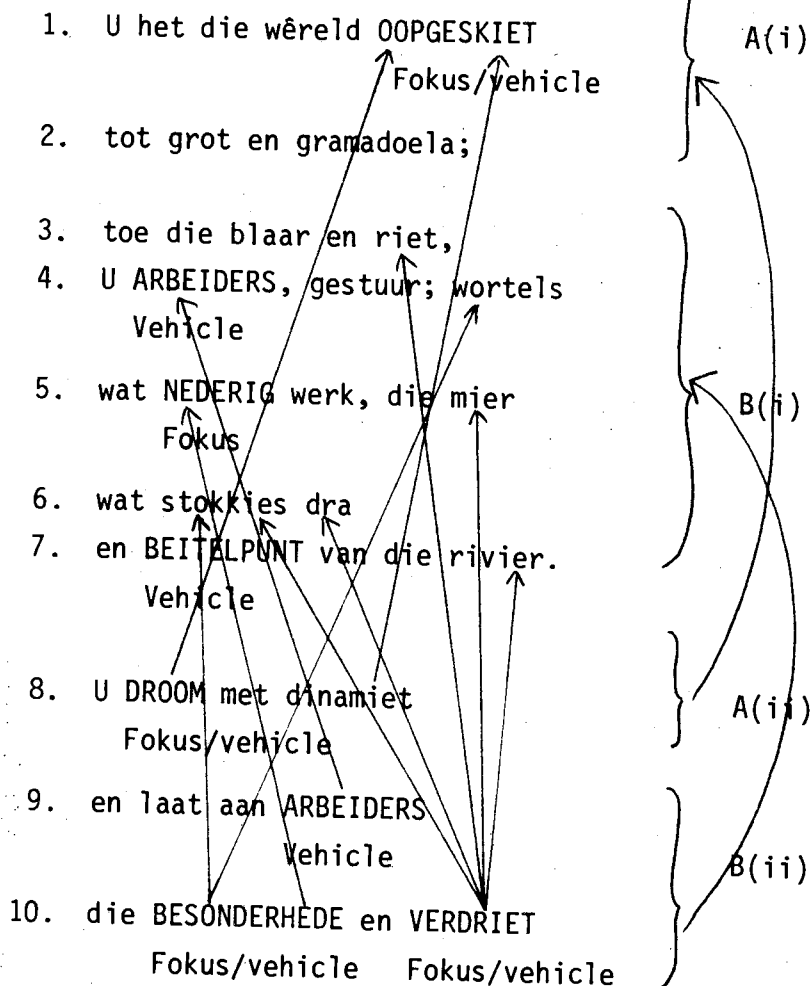 1. U het die wêreld OOPGESKIET A(i)
Fokus/vehicle
2. tot grot en gramadoela;
3. toe die blaar en riet,
4. U ARBEIDERS, gestuur; wortels
Vehicle
5. wat NEDERIG werk, die mier B(i)
Fokus
6. wat stokkies dra
7. en BEITELPUNT van die rivier.
Vehicle
8. U DROOM met dinamiet A(ii)
Fokus/vehicle
9. en laat aan ARBEIDERS
Vehicle B(ii)
10. die BESONDERHEDE en VERDRIET
Fokus/vehicle Fokus/vehicle